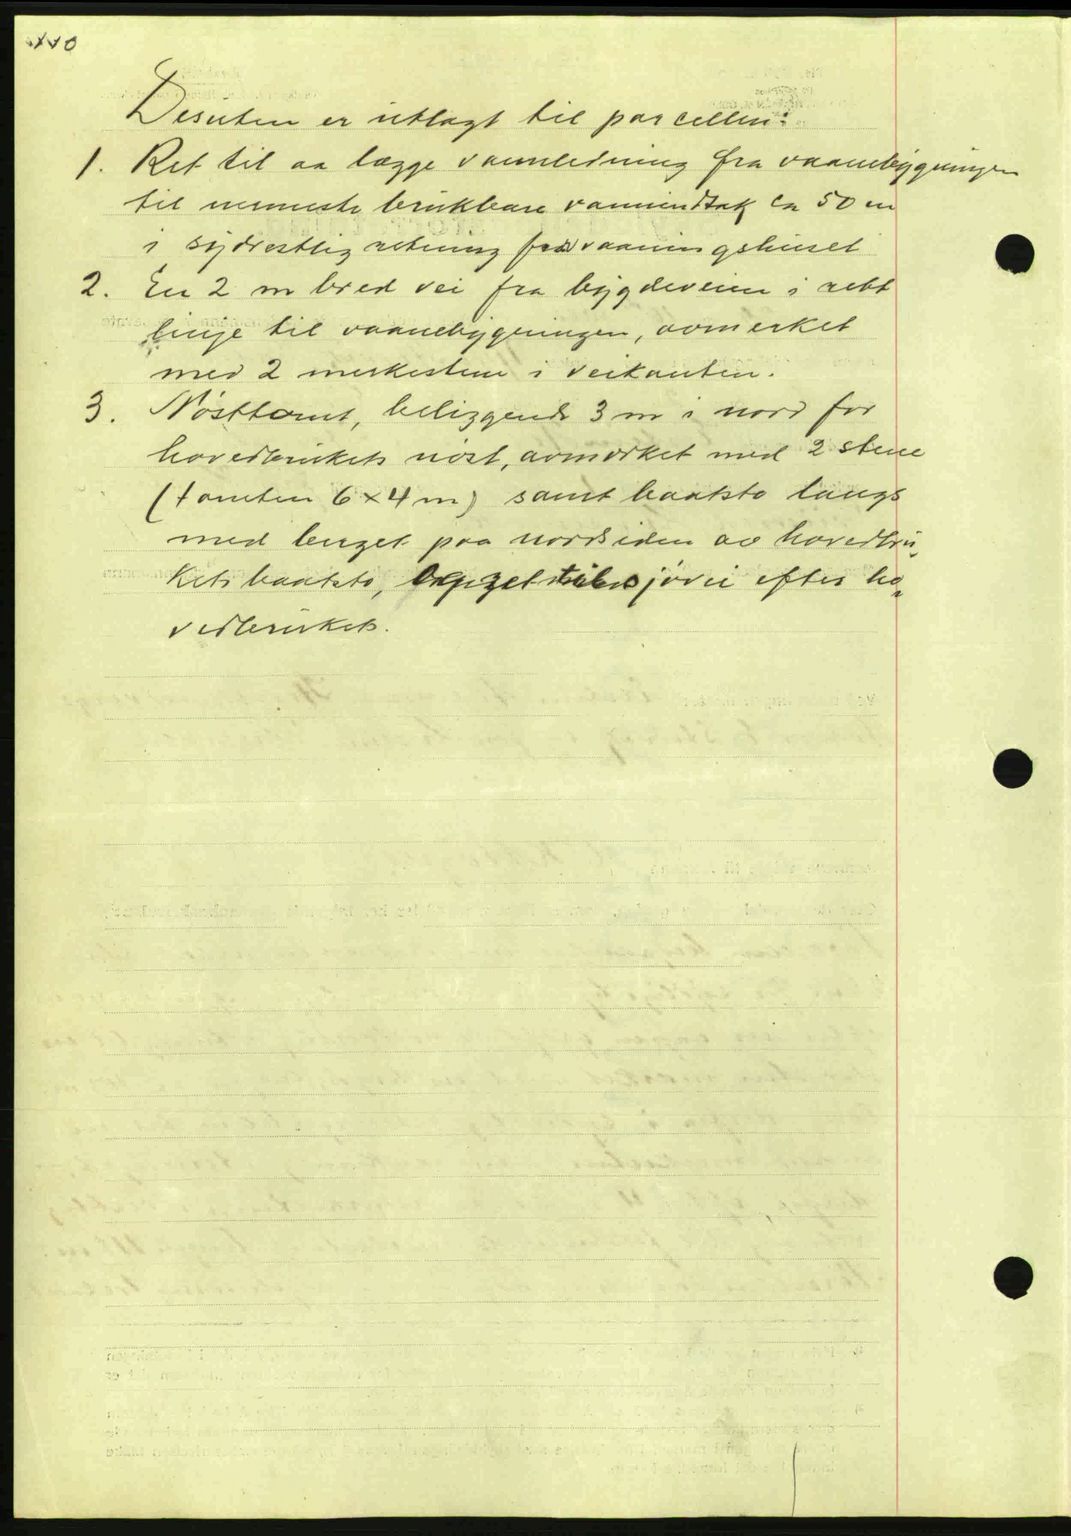 Desuten er utlagt til parcellen:
1. Ret til aa lægge vannledning fra vaanebygningen
til nermeste brukbare vannindtak ca 50 m
i sydvestlig retning fra vaaningshuset
2. En 2 m bred vei fra bygdeveien i rett
linje til vaanebygningen, avmerket
med 2 merkestene i veikanten.
3. Nøsttomt, beliggende 3 m i nord for
hovedbrukets nøst, avmerket med 2 stene
(tomten 6 x 4 m) samt baatstø langs
med berget paa nordsiden av hovedbru-
kets baatstø, til sjøvei efter ho-
vedbrukets.